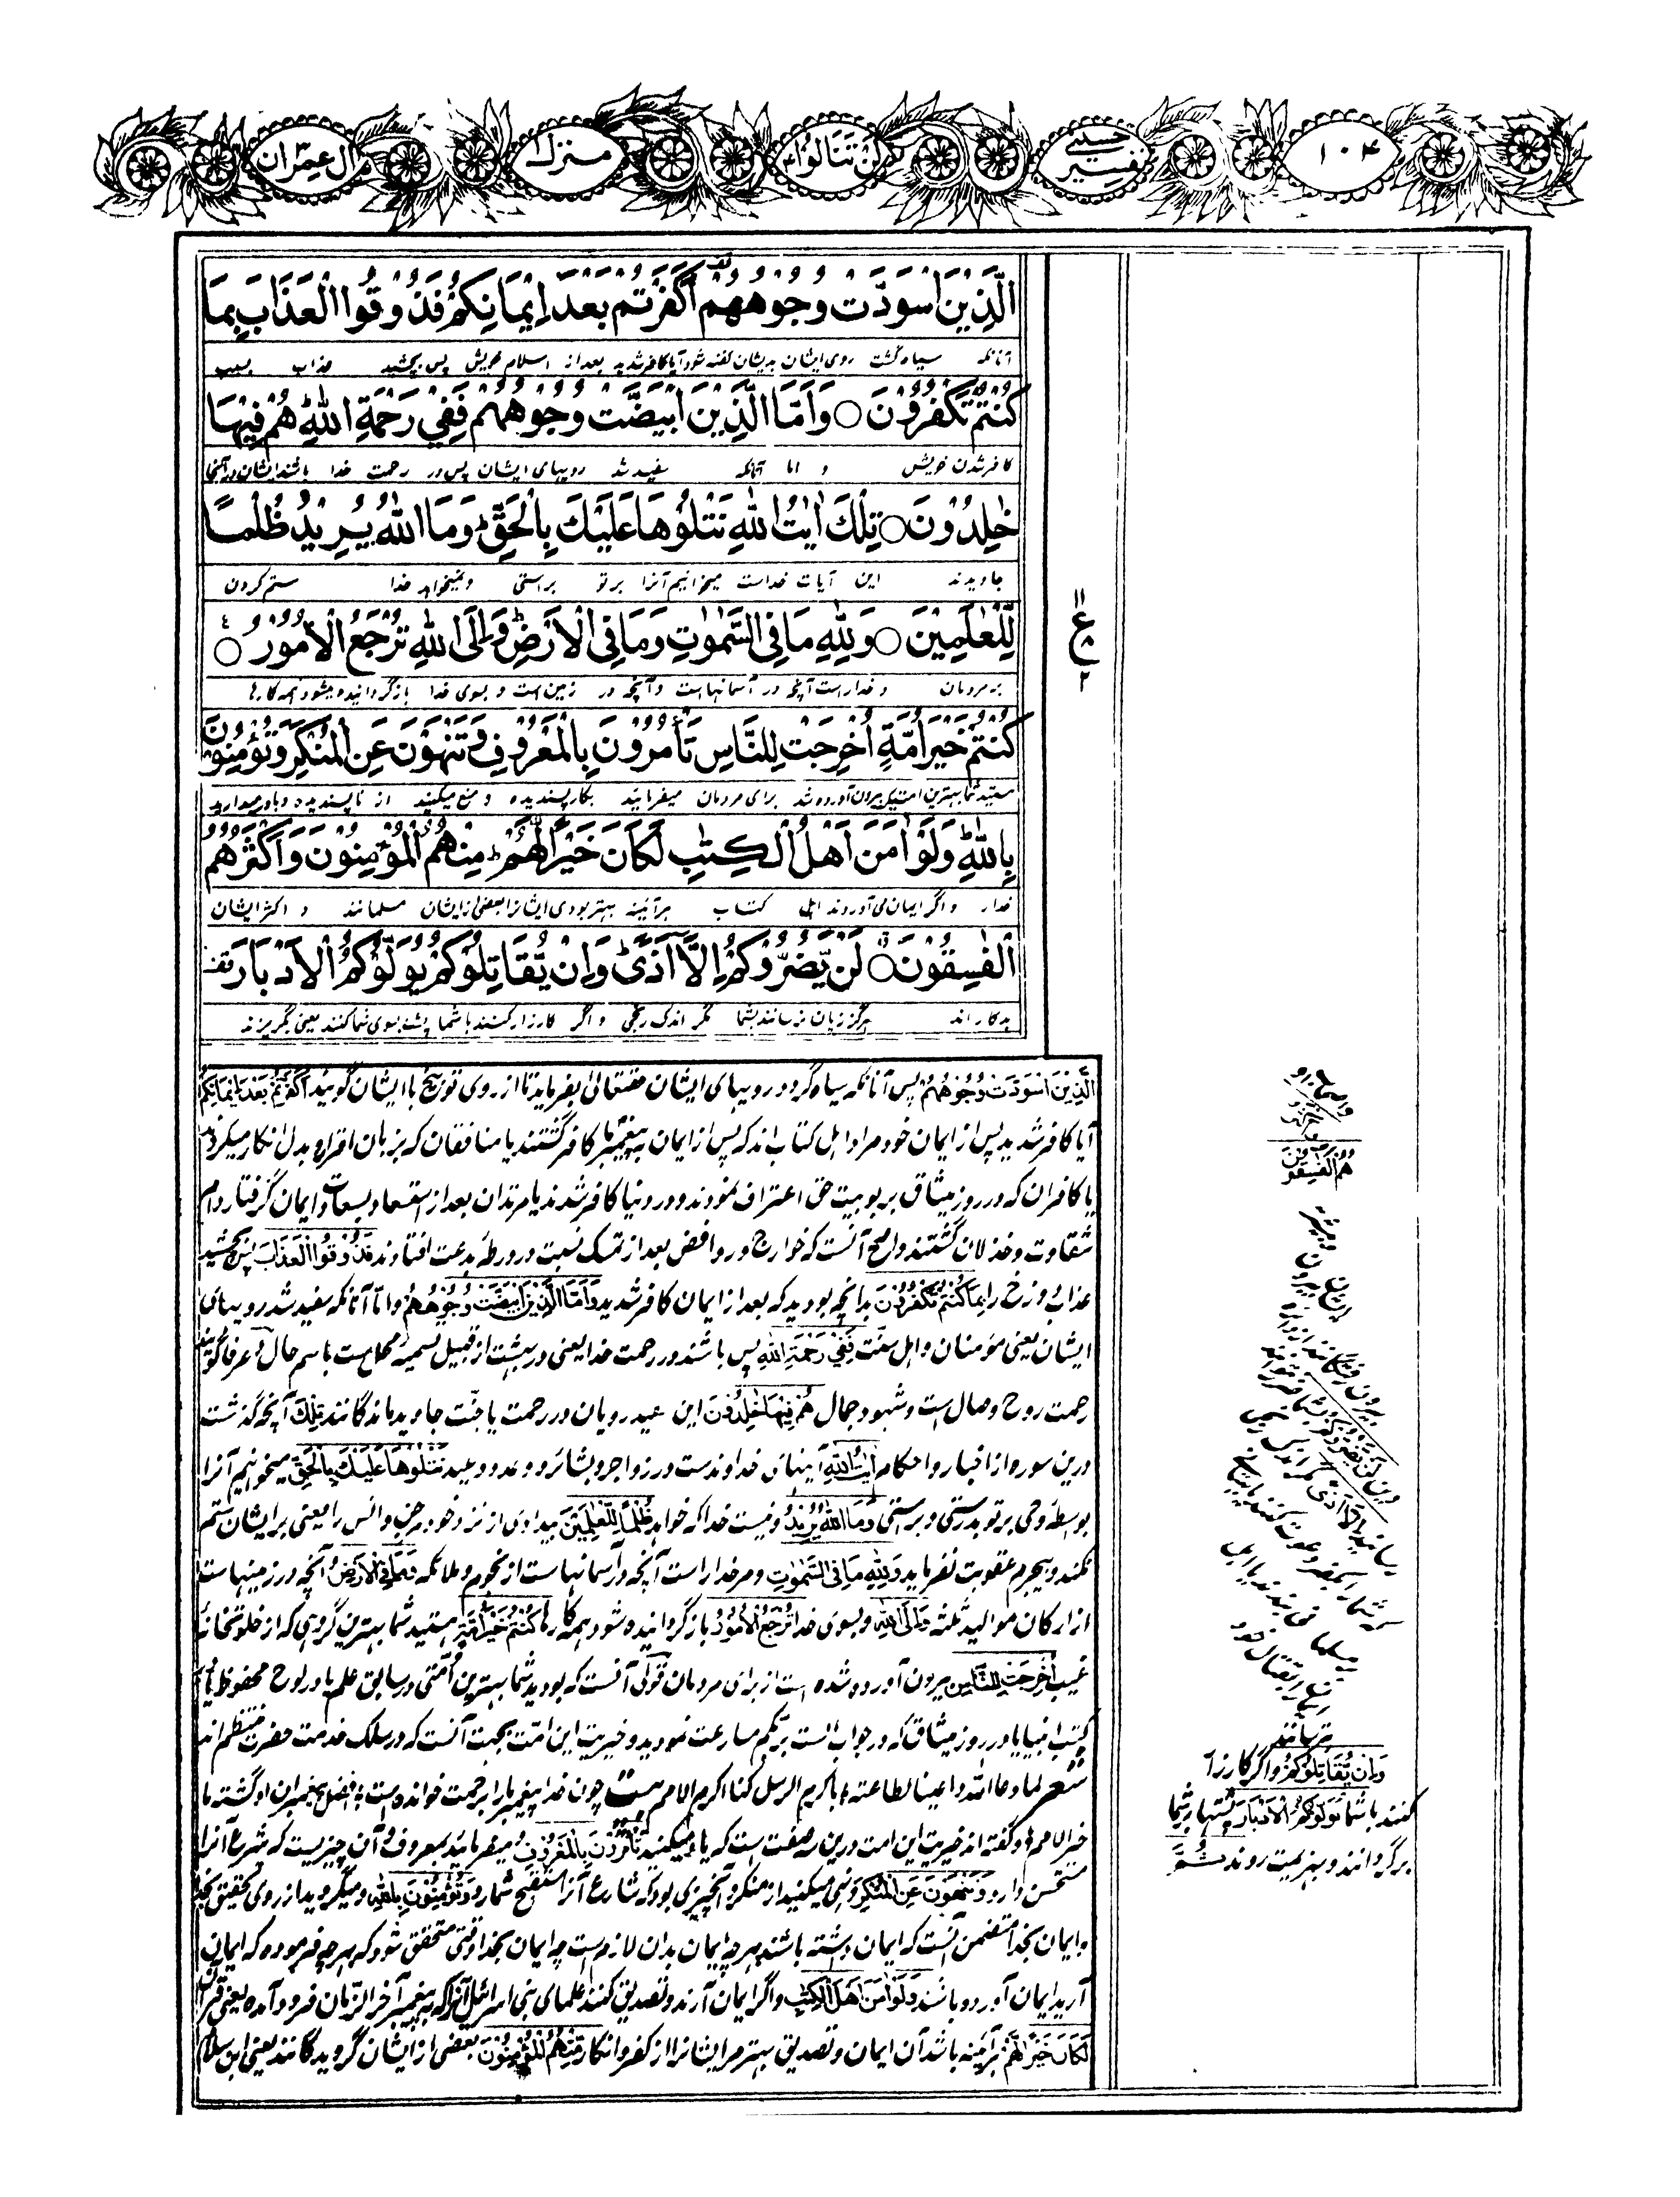 ۱۰۴
تفسیر حسینی
لن تنالوا ۴
منزل ۱
ال عمران
الَّذِيْنَ اسْوَدَّتْ وُجُوْهُهُمْ اَكَفَرْتُمْ بَعْدَ اِيْمَانِكُمْ فَذُوْقُوا الْعَذَابَ بِمَا
آنانکه سیاه گشت روی ایشان بدیشان گفته شود آیا کافر شدید بعد از اسلام خویش پس بچشید عذاب بسبب
كُنْتُمْ تَكْفُرُوْنَ ○ وَاَمَّا الَّذِيْنَ ابْيَضَّتْ وُجُوْهُهُمْ فَفِيْ رَحْمَةِ اللّٰهِ هُمْ فِيْهَا
کافر شدن خویش و اما آنانکه سفید شد رویهای ایشان پس در رحمت خدا باشند ایشان در آنجا
خٰلِدُوْنَ ○ تِلْكَ اٰيٰتُ اللّٰهِ نَتْلُوْهَا عَلَيْكَ بِالْحَقِّ ؕ وَمَا اللّٰهُ يُرِيْدُ ظُلْمًا
جاویدند این آیات خداست میخوانیم آنرا بر تو براستی و نمیخواهد خدا ستم کردن
لِّلْعٰلَمِيْنَ ○ وَلِلّٰهِ مَا فِى السَّمٰوٰتِ وَمَا فِى الْاَرْضِ ؕ وَاِلَى اللّٰهِ تُرْجَعُ الْاُمُوْرُ ○
بر مردمان و خدا راست آنچه در آسمانهاست و آنچه در زمین است و بسوی خدا بازگردانیده میشود همه کارها
كُنْتُمْ خَيْرَ اُمَّةٍ اُخْرِجَتْ لِلنَّاسِ تَاْمُرُوْنَ بِالْمَعْرُوْفِ وَتَنْهَوْنَ عَنِ الْمُنْكَرِ وَتُؤْمِنُوْنَ
هستید شما بهترین امتیکه بیرون آورده شد برای مردمان میفرمائید بکار پسندیده و منع میکنید از ناپسندیده و باور میدارید
بِاللّٰهِ ؕ وَلَوْ اٰمَنَ اَهْلُ الْكِتٰبِ لَكَانَ خَيْرًا لَّهُمْ ؕ مِنْهُمُ الْمُؤْمِنُوْنَ وَاَكْثَرُهُمُ
خدا را و اگر ایمان می آوردند اهل کتاب هرآئینه بهتر بودی ایشانرا بعضی از ایشان مسلمانند و اکثر ایشان
الْفٰسِقُوْنَ ○ لَنْ يَّضُرُّوْكُمْ اِلَّا اَذًى ؕ وَاِنْ يُّقَاتِلُوْكُمْ يُوَلُّوْكُمُ الْاَدْبَارَ
بدکاراند هرگز زیان نرسانند بشما مگر اندک رنجی و اگر کارزار کنند با شما پشت بسوی شما کنند یعنی بگریزند
۱۱
ع
۲
الَّذِيْنَ اسْوَدَّتْ وُجُوْهُهُمْ پس آنانکه سیاه گردد رویهای ایشان حقتعالی بفرماید تا از روی توبیخ با ایشان گویند اَكَفَرْتُمْ بَعْدَ اِيْمَانِكُمْ
آیا کافر شدید پس از ایمان خود مراد اهل کتاب اند که پس از ایمان به پیغمبر ما کافر گشتند یا منافقان که بزبان اقرار و بدل انکار میکردند
یا کافران که در روز میثاق بربوبیت حق اعتراف نمودند و در دنیا کافر شدند یا مرتدان بعد از استسعاد بسعادت ایمان گرفتار دام
شقاوت و خذلان گشتند و اصح آنست که خوارج و روافض بعد از تمسک نسبت در ورطه بدعت افتادند فَذُوْقُوا الْعَذَابَ پس بچشید
عذاب دوزخ را بِمَا كُنْتُمْ تَكْفُرُوْنَ بدانچه بودید که بعد از ایمان کافر شدید وَاَمَّا الَّذِيْنَ ابْيَضَّتْ وُجُوْهُهُمْ و اما آنانکه سفید شد رویهای
ایشان یعنی مؤمنان و اهل سنت فَفِيْ رَحْمَةِ اللّٰهِ پس باشند در رحمت خدا یعنی در بهشت از قبیل تسمیه محل است باسم حال و عرفا گویند
رحمت روح وصال است و شهود جمال هُمْ فِيْهَا خٰلِدُوْنَ این عبد رویان در رحمت یا جنت جاوید ماندگانند تِلْكَ آنچه گذشت
درین سوره از اخبار و احکام اٰيٰتُ اللّٰهِ آیتهای خداوندست در زواجر و بشائر و وعد و وعید نَتْلُوْهَا عَلَيْكَ بِالْحَقِّ میخوانیم آنرا
بواسطه وحی بر تو بدرستی و براستی وَمَا اللّٰهُ يُرِيْدُ و نیست خدا که خواهد ظُلْمًا لِّلْعٰلَمِيْنَ بیدادی از نزد خود بر جن و انس را یعنی بر ایشان ستم
نکند و بیجرم عقوبت نفرماید وَلِلّٰهِ مَا فِى السَّمٰوٰتِ و مر خدا راست آنچه در آسمانهاست از نجوم و ملائکه وَمَا فِى الْاَرْضِ و آنچه در زمینهاست
از ارکان موالید ثلثه وَاِلَى اللّٰهِ و بسوی خدا تُرْجَعُ الْاُمُوْرُ بازگردانیده شود همه کارها كُنْتُمْ خَيْرَ اُمَّةٍ هستید شما بهترین گروهی که از خلوتخانه
غیب اُخْرِجَتْ لِلنَّاسِ بیرون آورده شده است از برای مردمان قولی آنست که بودید شما بهترین امتی در سابق علم یا در لوح محفوظ یا
کتب انبیا یا در روز میثاق که در جواب الست بربکم مسارعت نمودید و خیریت این امت بجهت آنست که در سلک خدمت حضرت منتظم اند
شعر لما دعا الله داعینا لطاعته باکرم الرسل کنا اکرم الامم بیت چون خدا پیغمبر ما را برحمت خوانده است افضل پیغمبران او گشته ما
خیر الامم و گفته اند خیریت این امت درین سه صفت است که یاد میکند تَاْمُرُوْنَ بِالْمَعْرُوْفِ میفرمائید بمعروف و آن چیزیست که شرع آنرا
مستحسن دارد وَتَنْهَوْنَ عَنِ الْمُنْكَرِ و نهی میکنید از منکر و آنچیزی بود که شارع آنرا مستقبح شمارد وَتُؤْمِنُوْنَ بِاللّٰهِ و میگروید از روی تحقیق بخدا
و ایمان بخدا متضمن آنست که ایمان داشته باشند بهر چه ایمان بدان لازم است چه ایمان بخدا وقتی متحقق شود که بهر چه فرموده که ایمان
آرید ایمان آورده باشند وَلَوْ اٰمَنَ اَهْلُ الْكِتٰبِ و اگر ایمان آرند و تصدیق کنند علمای بنی اسرائیل آنرا که به پیغمبر آخر الزمان فرود آمده یعنی قرآن
لَكَانَ خَيْرًا لَّهُمْ هرآئینه باشد آن ایمان و تصدیق بهتر مر ایشانرا از کفر و انکار مِنْهُمُ الْمُؤْمِنُوْنَ بعضی از ایشان گرویدگانند یعنی ابن سلام
هُمُ الْفٰسِقُوْنَ
وَاِنْ يُّقَاتِلُوْكُمْ و اگر کارزار
کنند با شما يُوَلُّوْكُمُ الْاَدْبَارَ پشتها بر شما
برگردانند و بهزیمت روند ثُمَّ